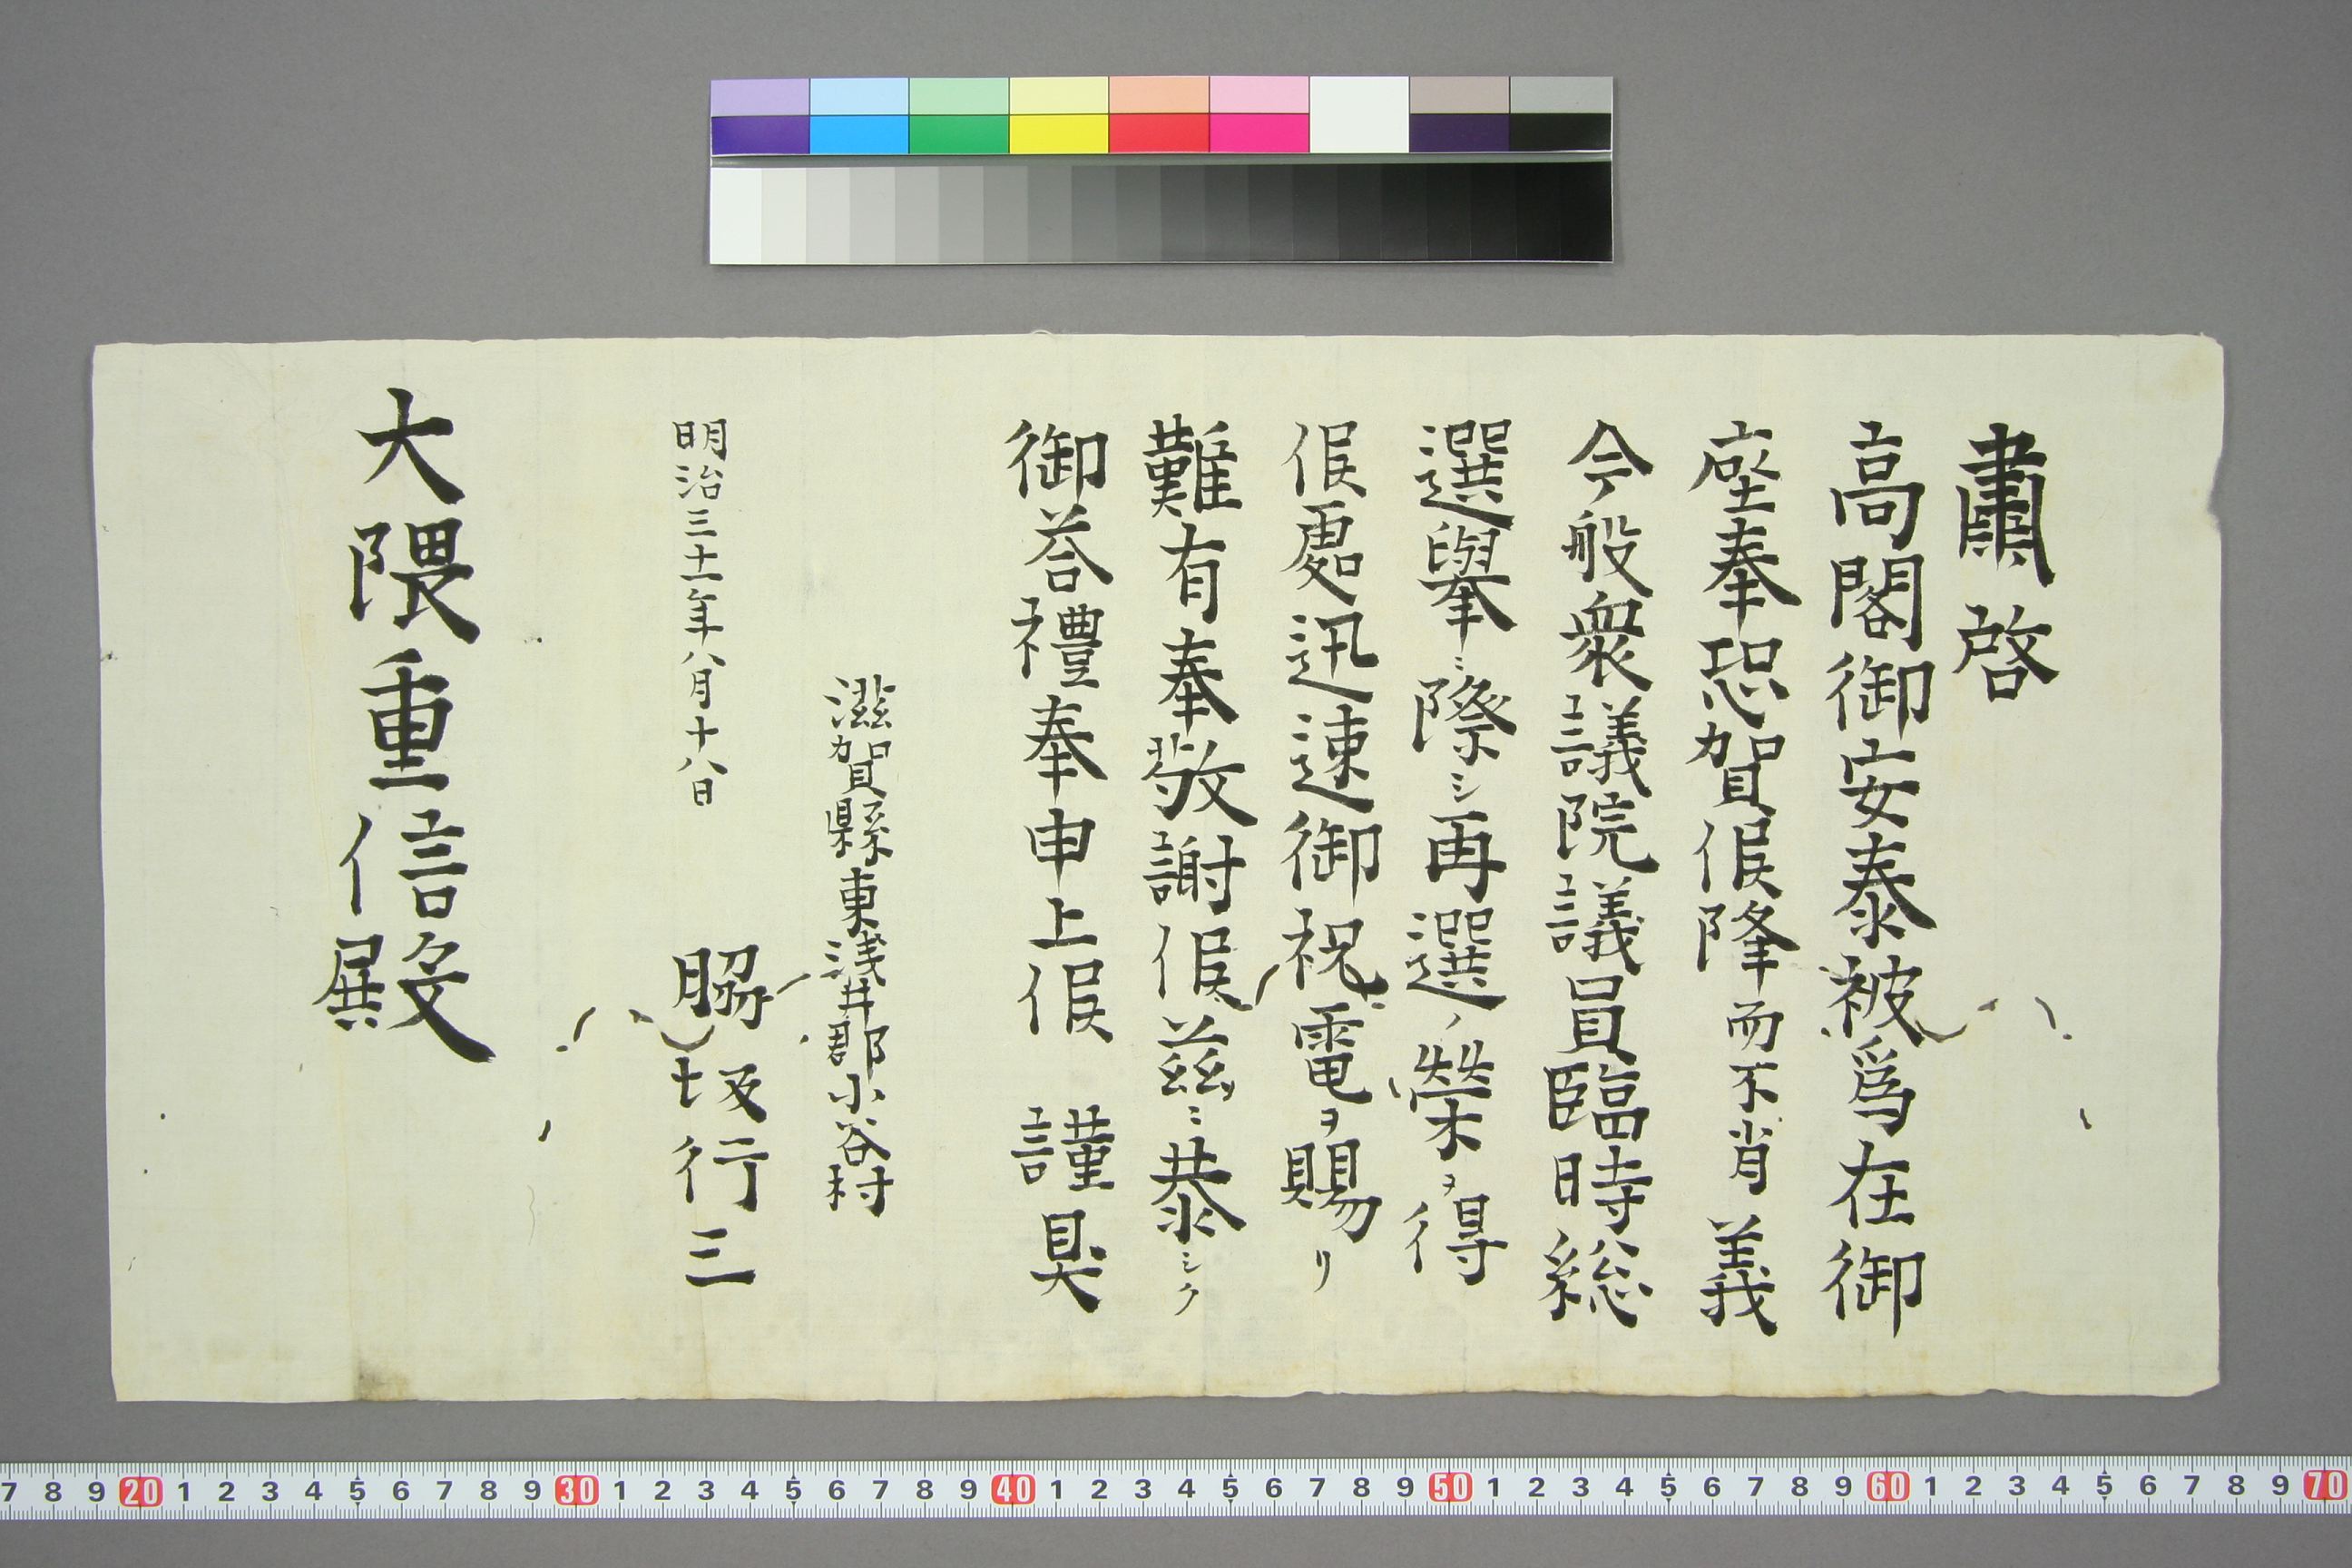 肅啓
高閣御安泰被爲在御
座奉恐賀候降而不肖義
今般衆議院議員臨時総
選擧ニ際シ再選ノ榮ヲ得
候處迅速御祝電ヲ賜リ
難有奉敬謝候茲ニ恭シク
御荅禮奉申上候 謹具
滋賀縣東浅井郡小谷村
明治三十一年八月十八日 脇坂行三
大隈重信殿
7 8 9 20 1 2 3 4 5 6 7 8 9 30 1 2 3 4 5 6 7 8 9 40 1 2 3 4 5 6 7 8 9 50 1 2 3 4 5 6 7 8 9 60 1 2 3 4 5 6 7 8 9 70